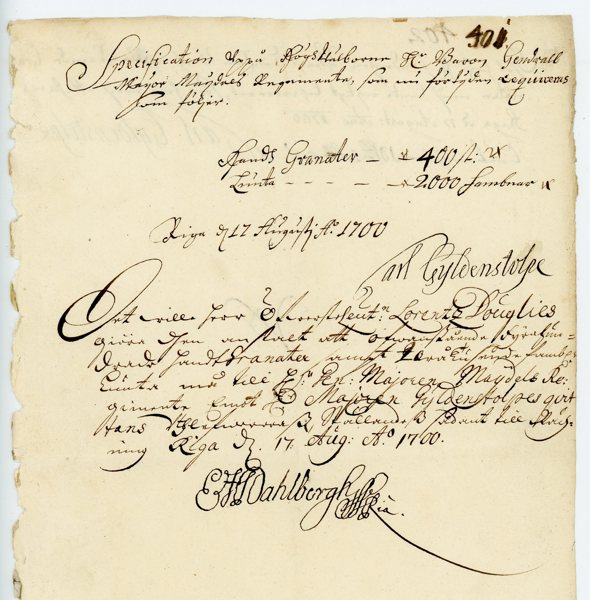 401
Specification Uppå Höghwälborne Hr Baron Generall
Mayor Maydels Regemente, som nu förtyden requireras
som följer.
Handh Granater — 400 st:
Lunta — 2000 fambnar
Riga d 17 Augusti Ao 1700
Carl Gyldenstolpe
Oert will herr Öfwersteleutn Lorentz Douglies
giöra then anstalt att ofwanstående fyrahun-
drade handtgranater sampt Twåtusende fambn:
Lunta må till Hr Majoren Maydels Re:
gimente Emot Majoren Gyldenstolpes
Hans till
ning Riga d. 17. Aug: Ao 1700.
E Dahlbergh